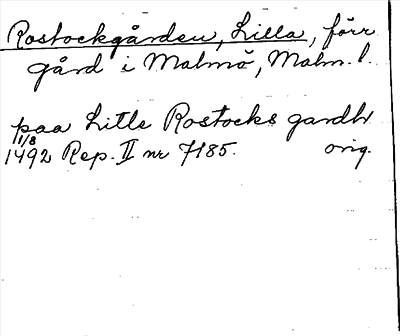 Rostockgården, Lilla, förr
gård i Malmö, Malm. l.
paa Litle Rostocks gardh
1/8
1492 Rep. II nr 7185. orig.